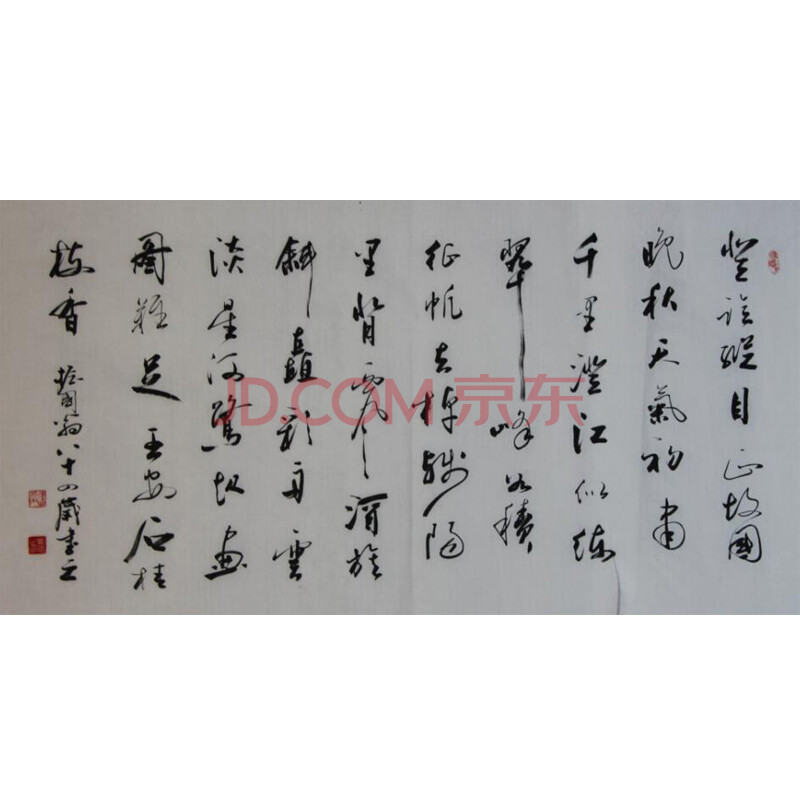 登临縱目正故國
晚秋天氣初肃
千里澄江似练
翠峰如
征帆去棹残陽
里背西风酒旗
斜矗彩舟雲
淡星河鹭起画
圖難足 王安石桂
枝香 国翁八十四歲書之
JD.COM 京东